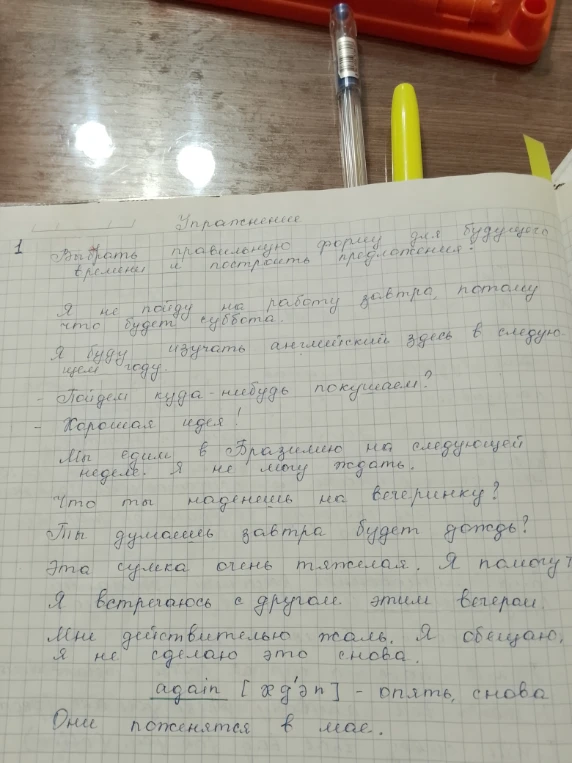 Упражнение
1 Выбрать правильную форму для будущего
времени и построить предложения.
Я не пойду на работу завтра, потому
что будет суббота.
Я буду изучать английский здесь в следую
щем году.
- Пойдем куда-нибудь покушаем?
- Хорошая идея!
Мы едим в Бразилию на следующей
неделе. Я не могу ждать.
Что ты наденешь на вечеринку?
Ты думаешь завтра будет дождь?
Эта сумка очень тяжелая. Я помогу
Я встречаюсь с другом этим вечером.
Мне действительно жаль. Я обещаю,
я не сделаю это снова.
again - опять, снова
Они поженятся в мае.